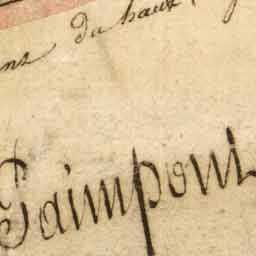 du haut
Paimpont